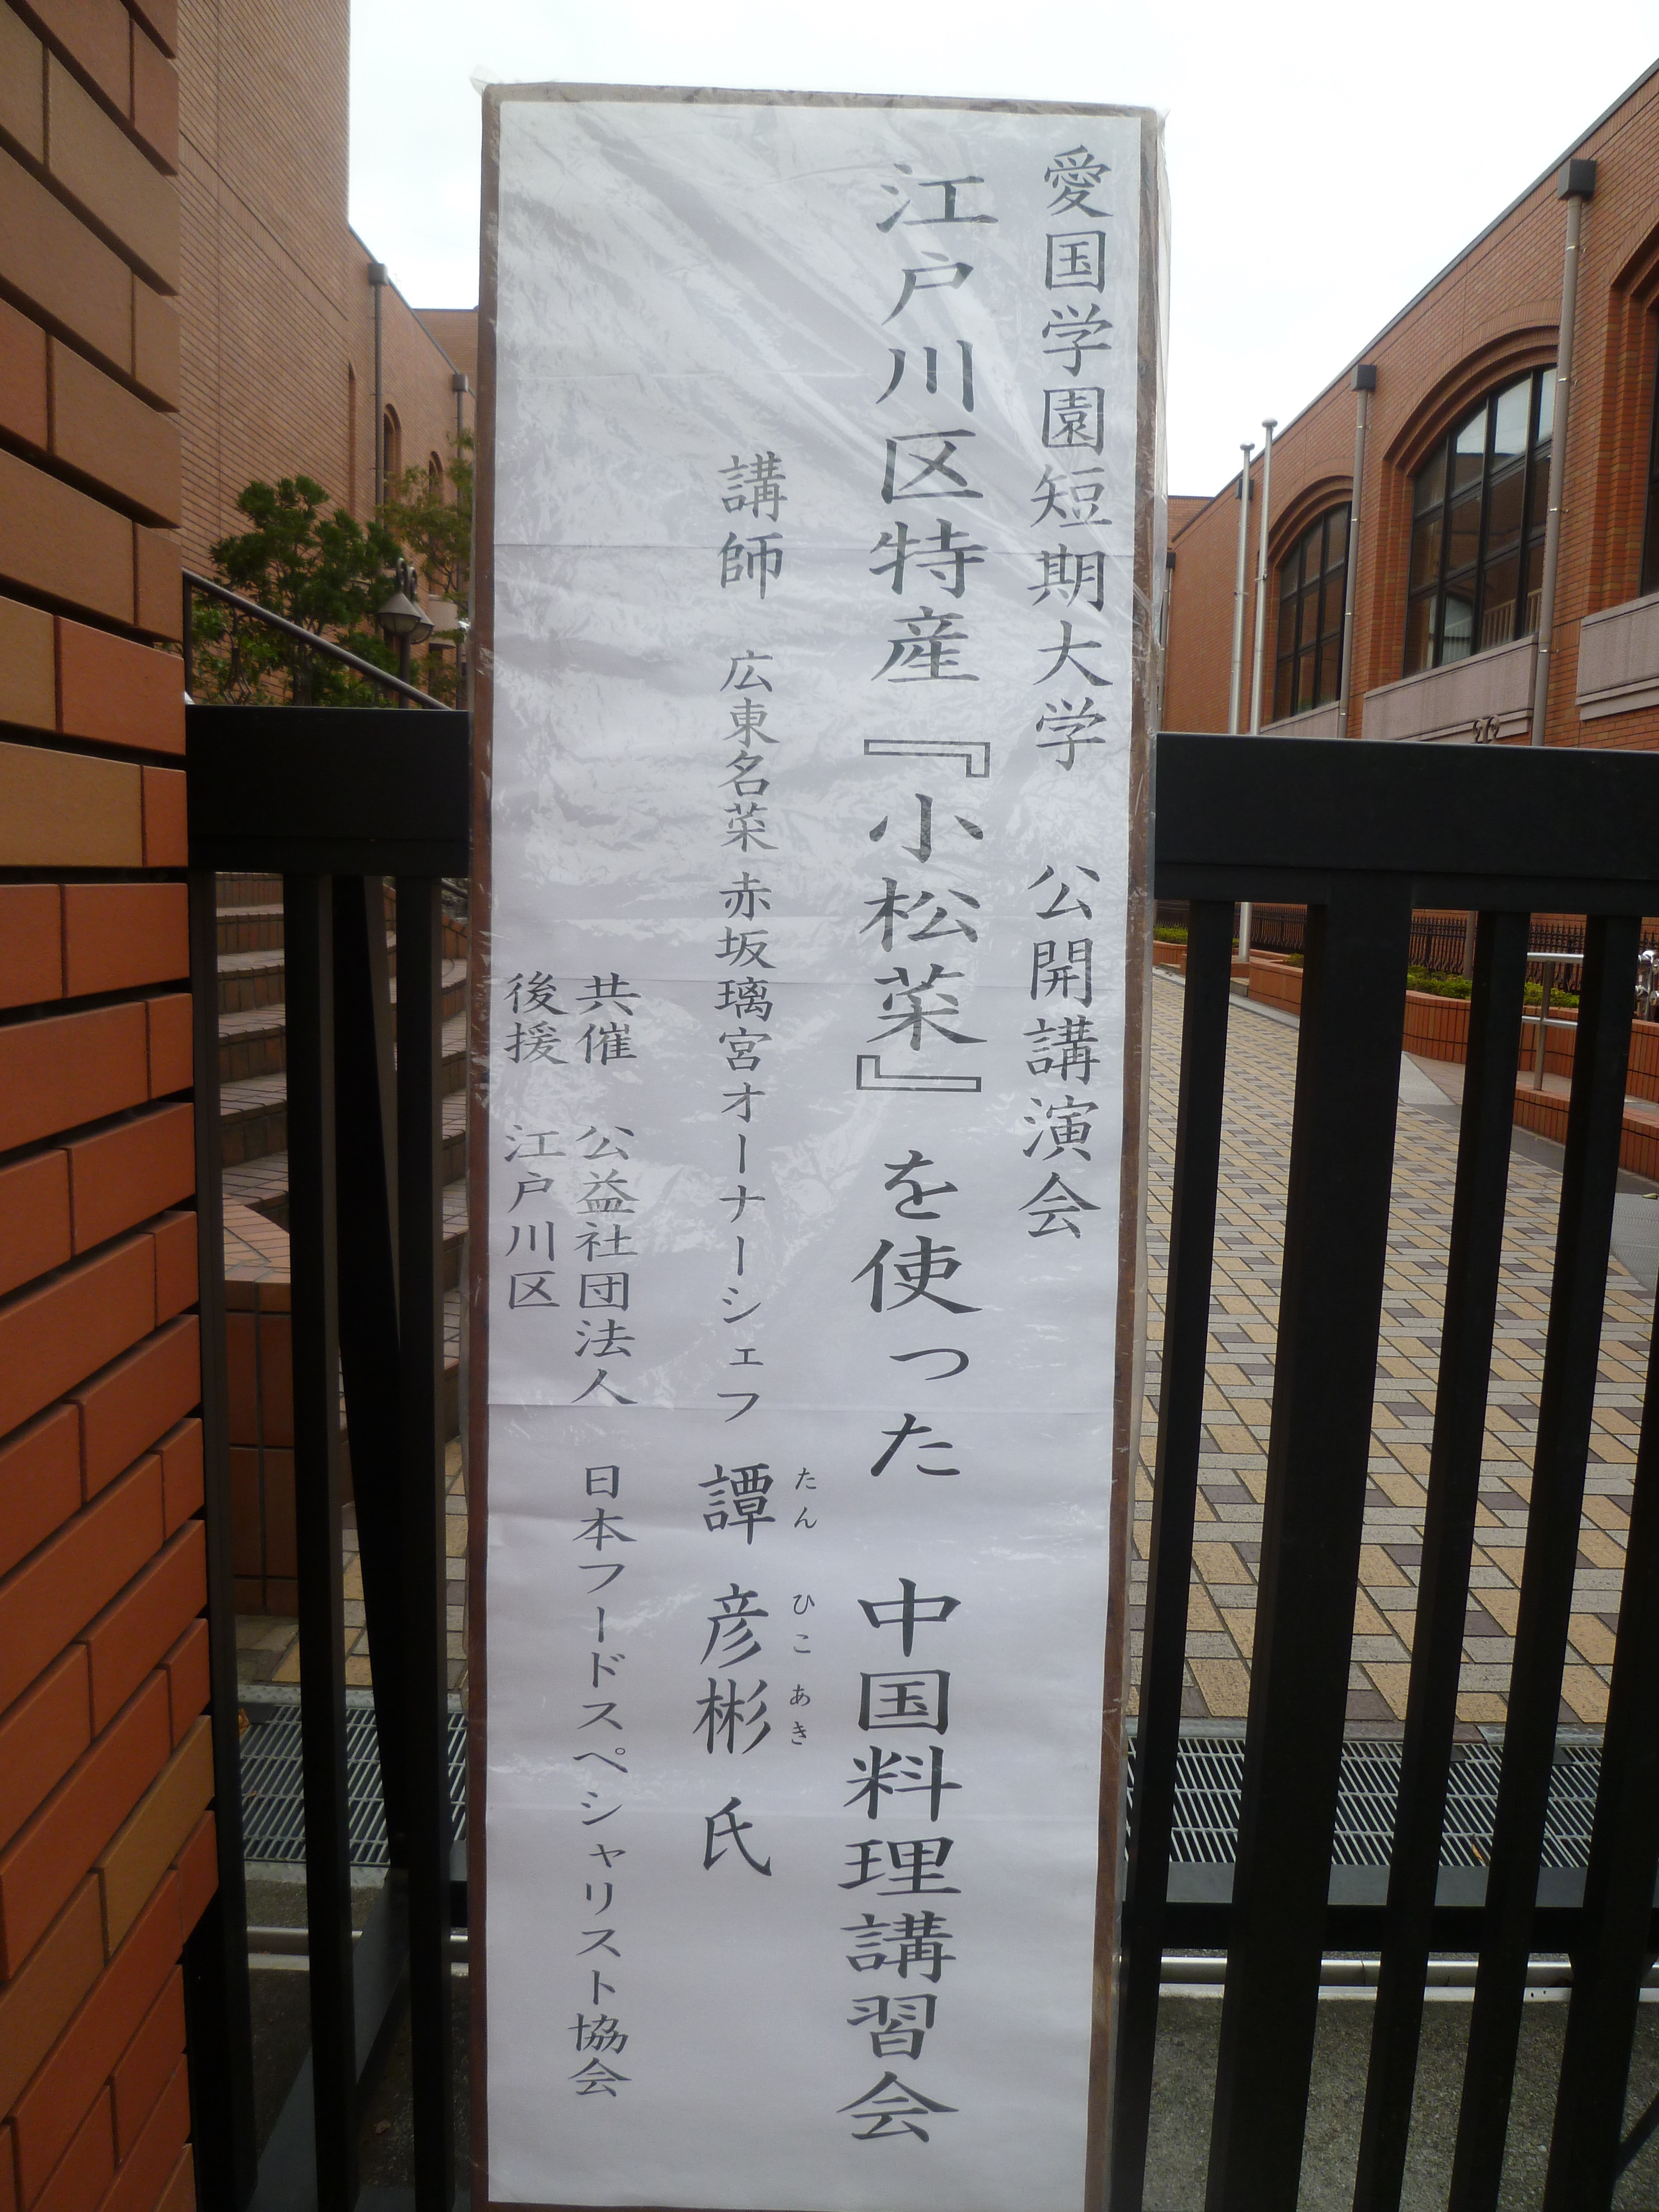 愛国学園短期大学 公開講演会
江戸川区特産『小松菜』を使った 中国料理講習会
講師 広東名菜 赤坂璃宮オーナーシェフ 譚 彦彬 氏
たん ひこ あき
共催 公益社団法人 日本フードスペシャリスト協会
後援 江戸川区